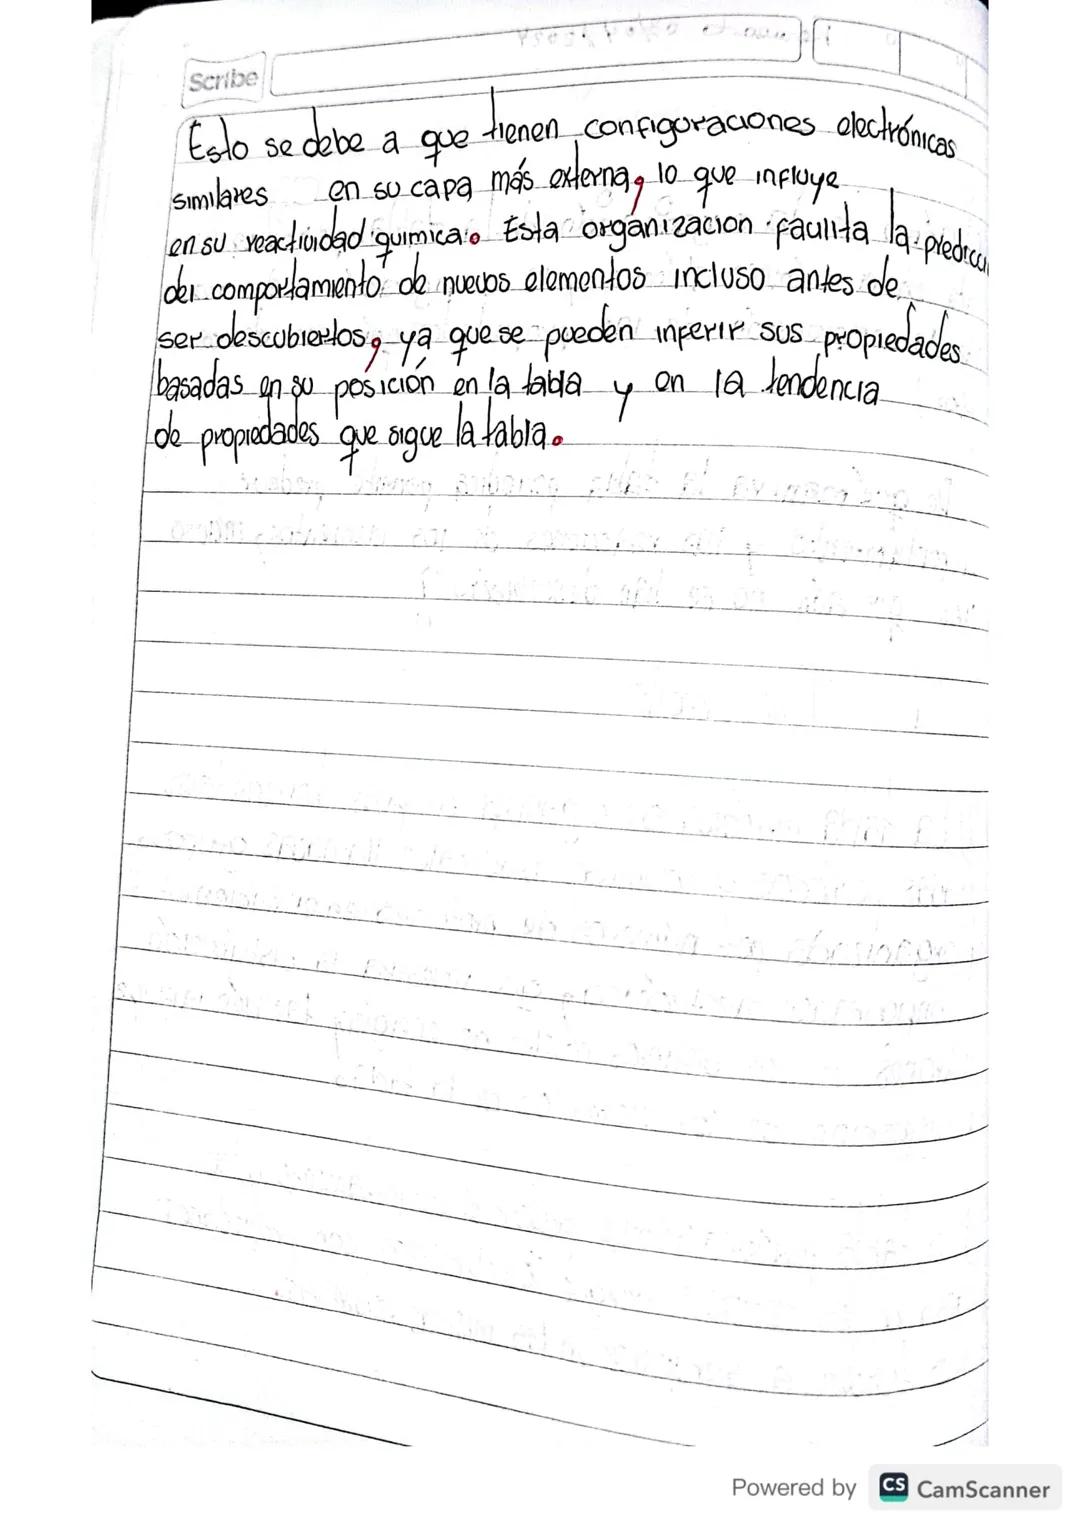 Scribe
Esto se debe a que tienen configuraciones electrónicas
similares en su capa más externa, lo que influye
en su reactividad quimica. Esta organización facilita la predicci
del comportamiento de nuevos elementos incluso antes de
ser descubiertos, ya que se pueden inferir sus propiedades
basadas en su posición en la tabla y en la tendencia
de propiedades que sigue la tabla.
Powered by CS CamScanner